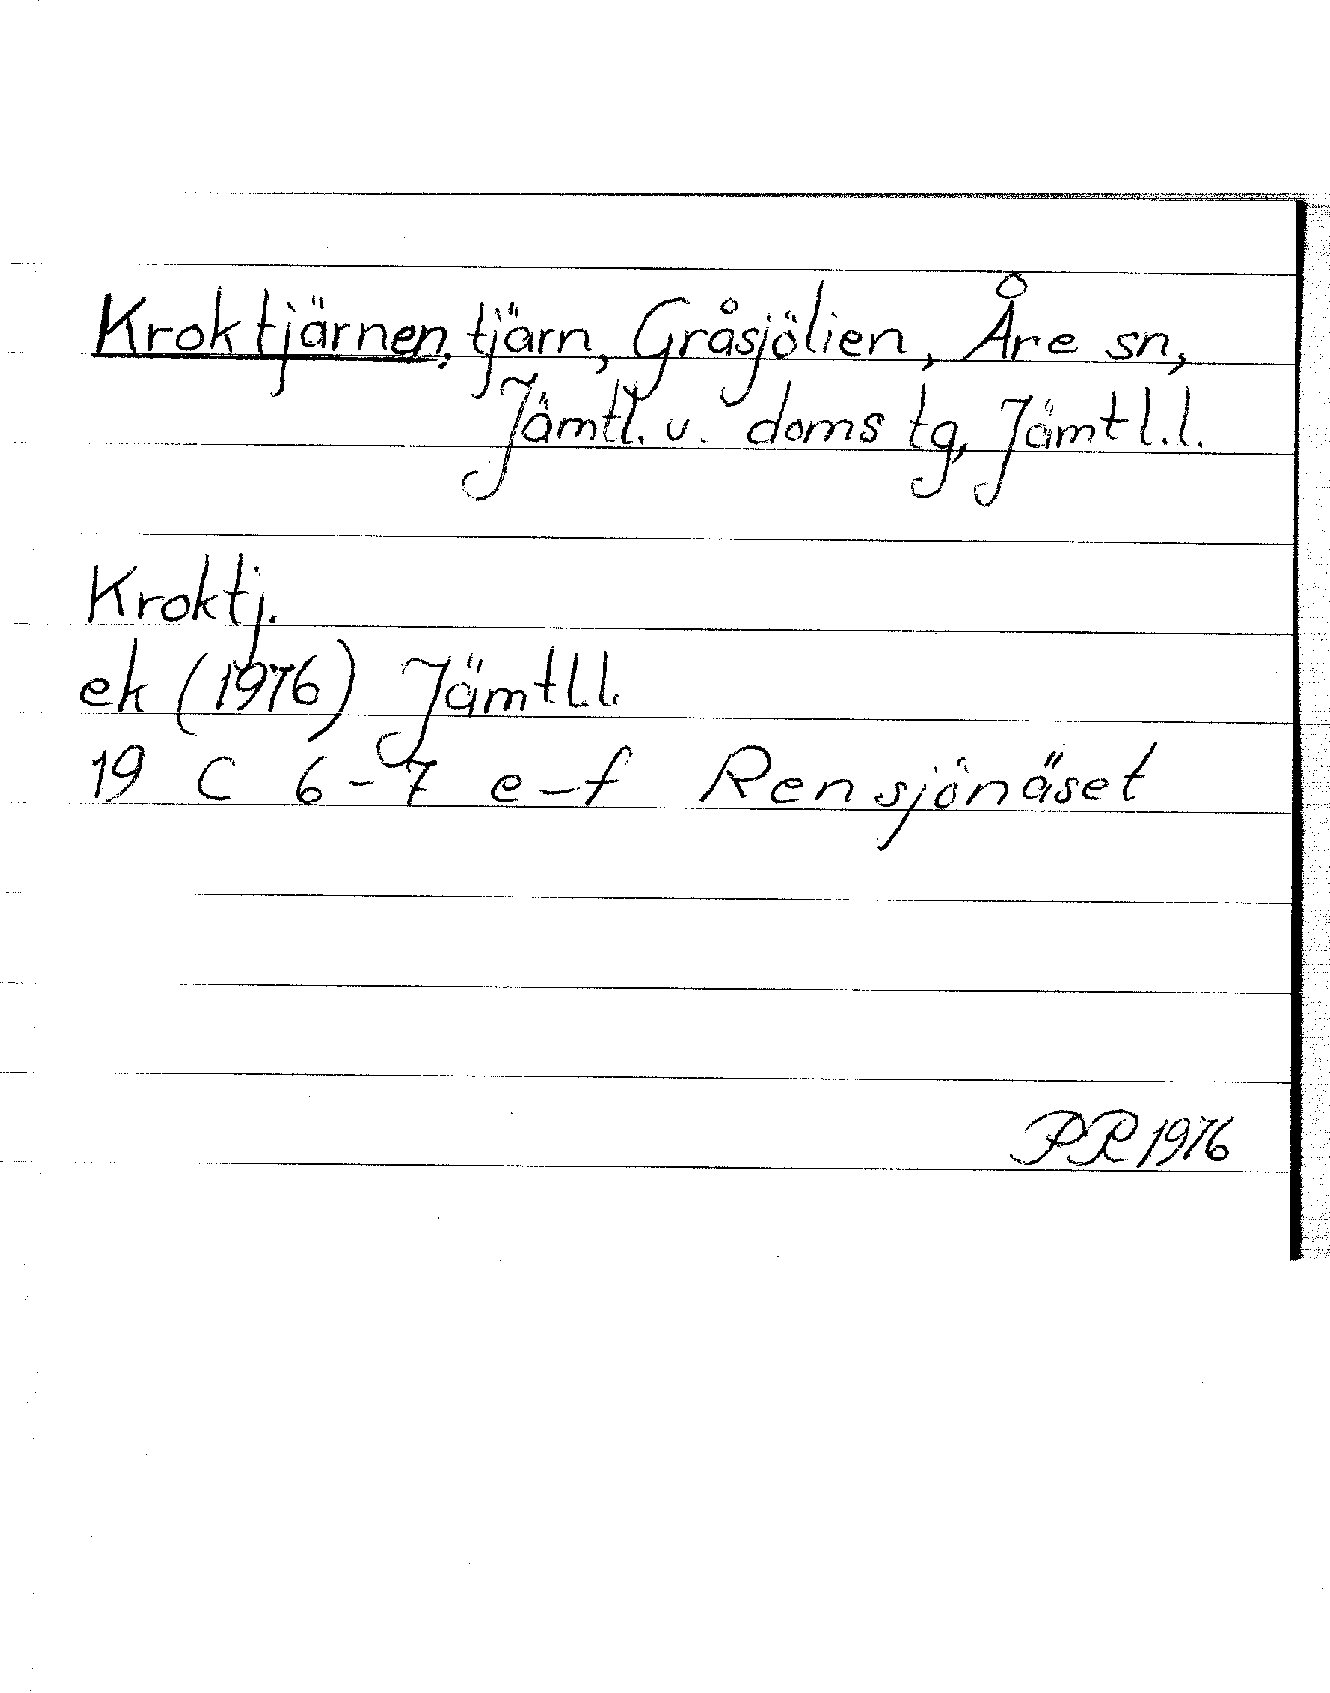 Kroktjärnen, tjärn, Gråsjölien, Åre sn,
Jämtl. v. doms tg, Jämtl.l.
Kroktj.
ek (1976) Jämtl.l.
19 C 6-7 e-f Rensjönäset
PR 1976